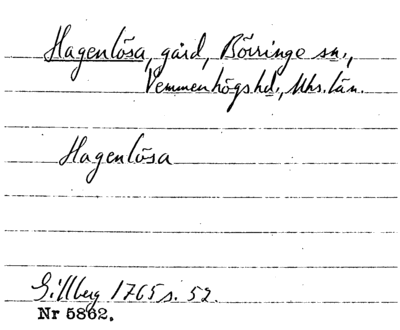 Hagenlösa, gård, Börringe sn.,
Vemmenhögs hd., Mhs. län.
Hagenlösa
Gillberg 1765 s. 52.
Nr 5862.